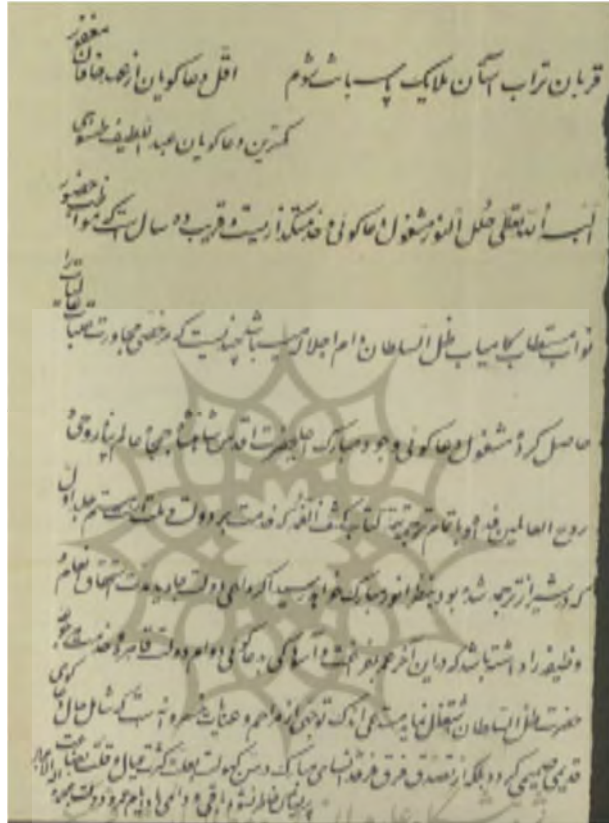 قربان تراب آستان ملایک پاسبانت شوم اقل دعاگویان از عهد خاقان مغفور
کمترین دعاگویان عبداللطیف طسوجی
مشغول دعاگوئی و خدمتگذاریست و قریب ده سال است که مواظب حضور
نواب مستطاب کامیاب ظل السلطان دام اجلاله میباشد چندیست که مرخصی مجاورت عتبات عالیات را
حاصل کرده مشغول دعاگوئی وجود مبارک اعلیحضرت اقدس شاهنشاهی عالم پناه روحی و
روح العالمین فداه و باتمام ترجمه کتاب کشف الغمه که خدمت بر دولت و ملت است هستم جلد اول
که در شیراز ترجمه شده بود بنظر انور مبارک خواهد رسید اگر اولیای دولت جاوید مدت استحقاق انعام و
وظیفه را داشته باشد که در این آخر عمر بفراغت و آسودگی بدعاگوئی دوام دولت قاهره و خدمت
حضرت ظل السلطان اشتغال نماید مستدعی اندک توجهی از مراحم و عنایات خسروانه است که شامل حال دعاگوی
قدیمی صمیمی گردد بلکه از تصدق فرق فرقدانسای مبارک در سن کهولت بعلت کثرت عیال و قلت بضاعت
پریشان خاطر نشده باقی و داعی